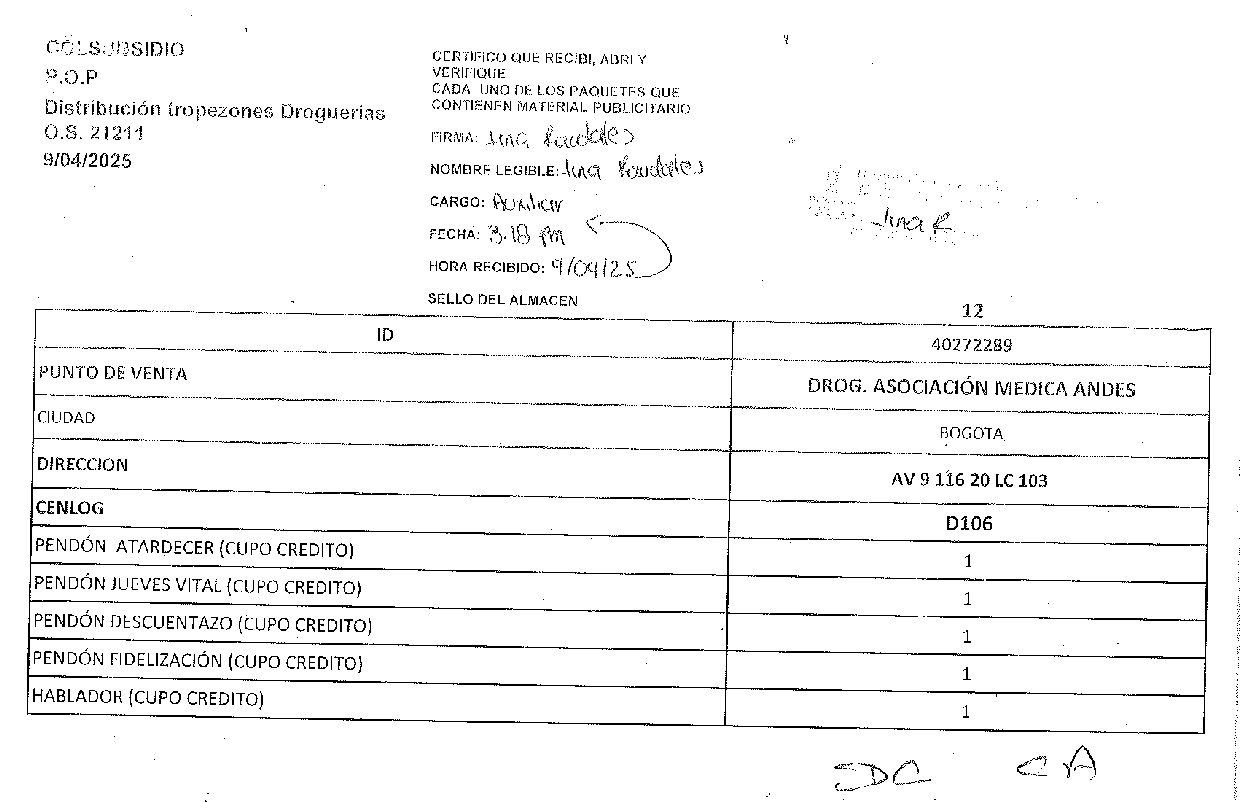 COLSUBSIDIO
P.O.P
Distribución tropezones Droguerias
O.S. 21211
9/04/2025
CERTIFICO QUE RECIBI, ABRI Y
VERIFIQUE
CADA UNO DE LOS PAQUETES QUE
CONTIENEN MATERIAL PUBLICITARIO
FIRMA:
NOMBRE LEGIBLE:
CARGO:
FECHA: 3:18 pm
HORA RECIBIDO: 9/04/25
SELLO DEL ALMACEN
12
ID 40272289
PUNTO DE VENTA DROG. ASOCIACIÓN MEDICA ANDES
CIUDAD BOGOTA
DIRECCION AV 9 116 20 LC 103
CENLOG D106
PENDÓN ATARDECER (CUPO CREDITO) 1
PENDÓN JUEVES VITAL (CUPO CREDITO) 1
PENDÓN DESCUENTAZO (CUPO CREDITO) 1
PENDÓN FIDELIZACIÓN (CUPO CREDITO) 1
HABLADOR (CUPO CREDITO) 1